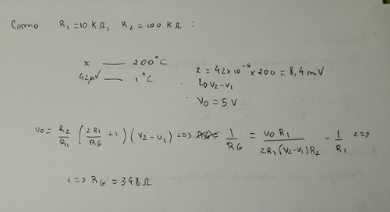 Como R₁=10KΩ, R₂=100KΩ :
x — 200°C
42μV — 1°C
x = 42×10⁻⁶ × 200 = 8,4mV
↳ v₂-v₁
V₀ = 5V
v₀ = R₂/R₁ (2R₁/RG + 1) (v₂-v₁) <=> 1/RG = v₀ R₁/2R₁(v₂-v₁)R₂ - 1/R₁ <=>
<=> RG = 348Ω